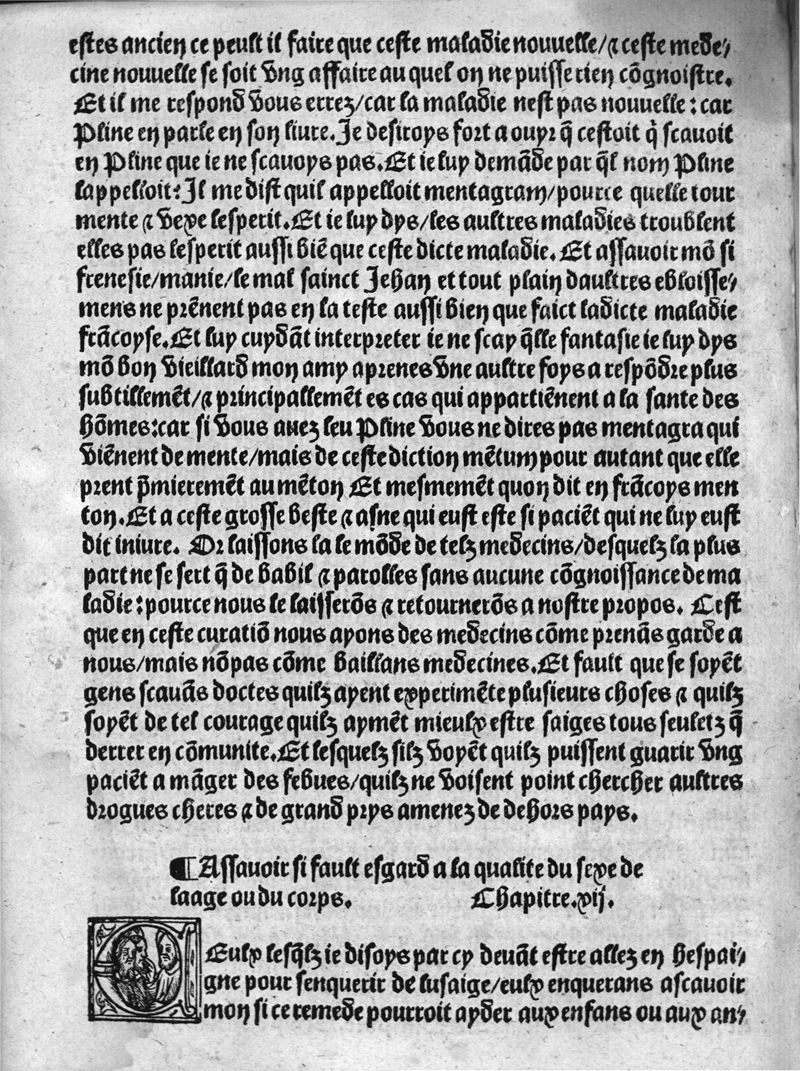 estes ancien ce peult il faire que ceste maladie nouuelle/⁊ ceste mede⸗
cine nouuelle se soit vng affaire au quel on ne puisse rien cõgnoistre.
Et il me respond vous errez/car la maladie nest pas nouuelle: car
Pline en parle en son liure. Je desiroys fort a ouyr q̃ cestoit q̃ scauoit
en Pline que ie ne scauoys pas. Et ie luy demãde par q̃l nom Pline
lappelloit: Jl me dist quil appelloit mentagram/pource quelle tour
mente ⁊ vexe lesperit. Et ie luy dys/les aultres maladies troublent
elles pas lesperit aussi biẽ que ceste dicte maladie. Et assauoir mõ si
frenesie/manie/le mal sainct Jehan et tout plain daultres ebloisse⸗
mens ne prẽnent pas en la teste aussi bien que faict ladicte maladie
frãcoyse. Et luy cuydãt interpreter ie ne scay q̃lle fantasie ie luy dys
mõ bon vieillard mon amy aprenes vne aultre foys a respõdre plus
subtillemẽt/⁊ principallemẽt es cas qui appartiẽnent a la sante des
hõmes: car si vous auez leu Pline vous ne dires pas mentagra qui
viẽnent de mente/mais de ceste diction mẽtum pour autant que elle
prent p̃mieremẽt au mẽton Et mesmemẽt quon dit en frãcoys men
ton. Et a ceste grosse beste ⁊ asne qui eust este si paciẽt qui ne luy eust
dit iniure. Or laissons la le mõde de telz medecins/desquelz la plus
part ne se sert q̃ de babil ⁊ parolles sans aucune cõgnoissance de ma
ladie: pource nous le laisserõs ⁊ retournerõs a nostre propos. Cest
que en ceste curatiõ nous ayons des medecins cõme prenãs garde a
nous/mais nõpas cõme baillans medecines. Et fault que se soyẽt
gens scauãs doctes quilz ayent experimẽte plusieurs choses ⁊ quilz
soyẽt de tel courage quilz aymẽt mieulx estre saiges tous seuletz q̃
derrer en cõmunite. Et lesquelz silz voyẽt quilz puissent guarir vng
paciẽt a mãger des febues/quilz ne voisent point chercher aultres
drogues cheres ⁊ de grand prys amenez de dehors pays.
¶ Assauoir si fault esgard a la qualite du sexe de
laage ou du corps. Chapitre.xij.
Ceulx lesq̃lz ie disoys par cy deuãt estre allez en Hespai⸗
gne pour senquerir de lusaige/eulx enquerans ascauoir
mon si ce remede pourroit ayder aux enfans ou aux an⸗